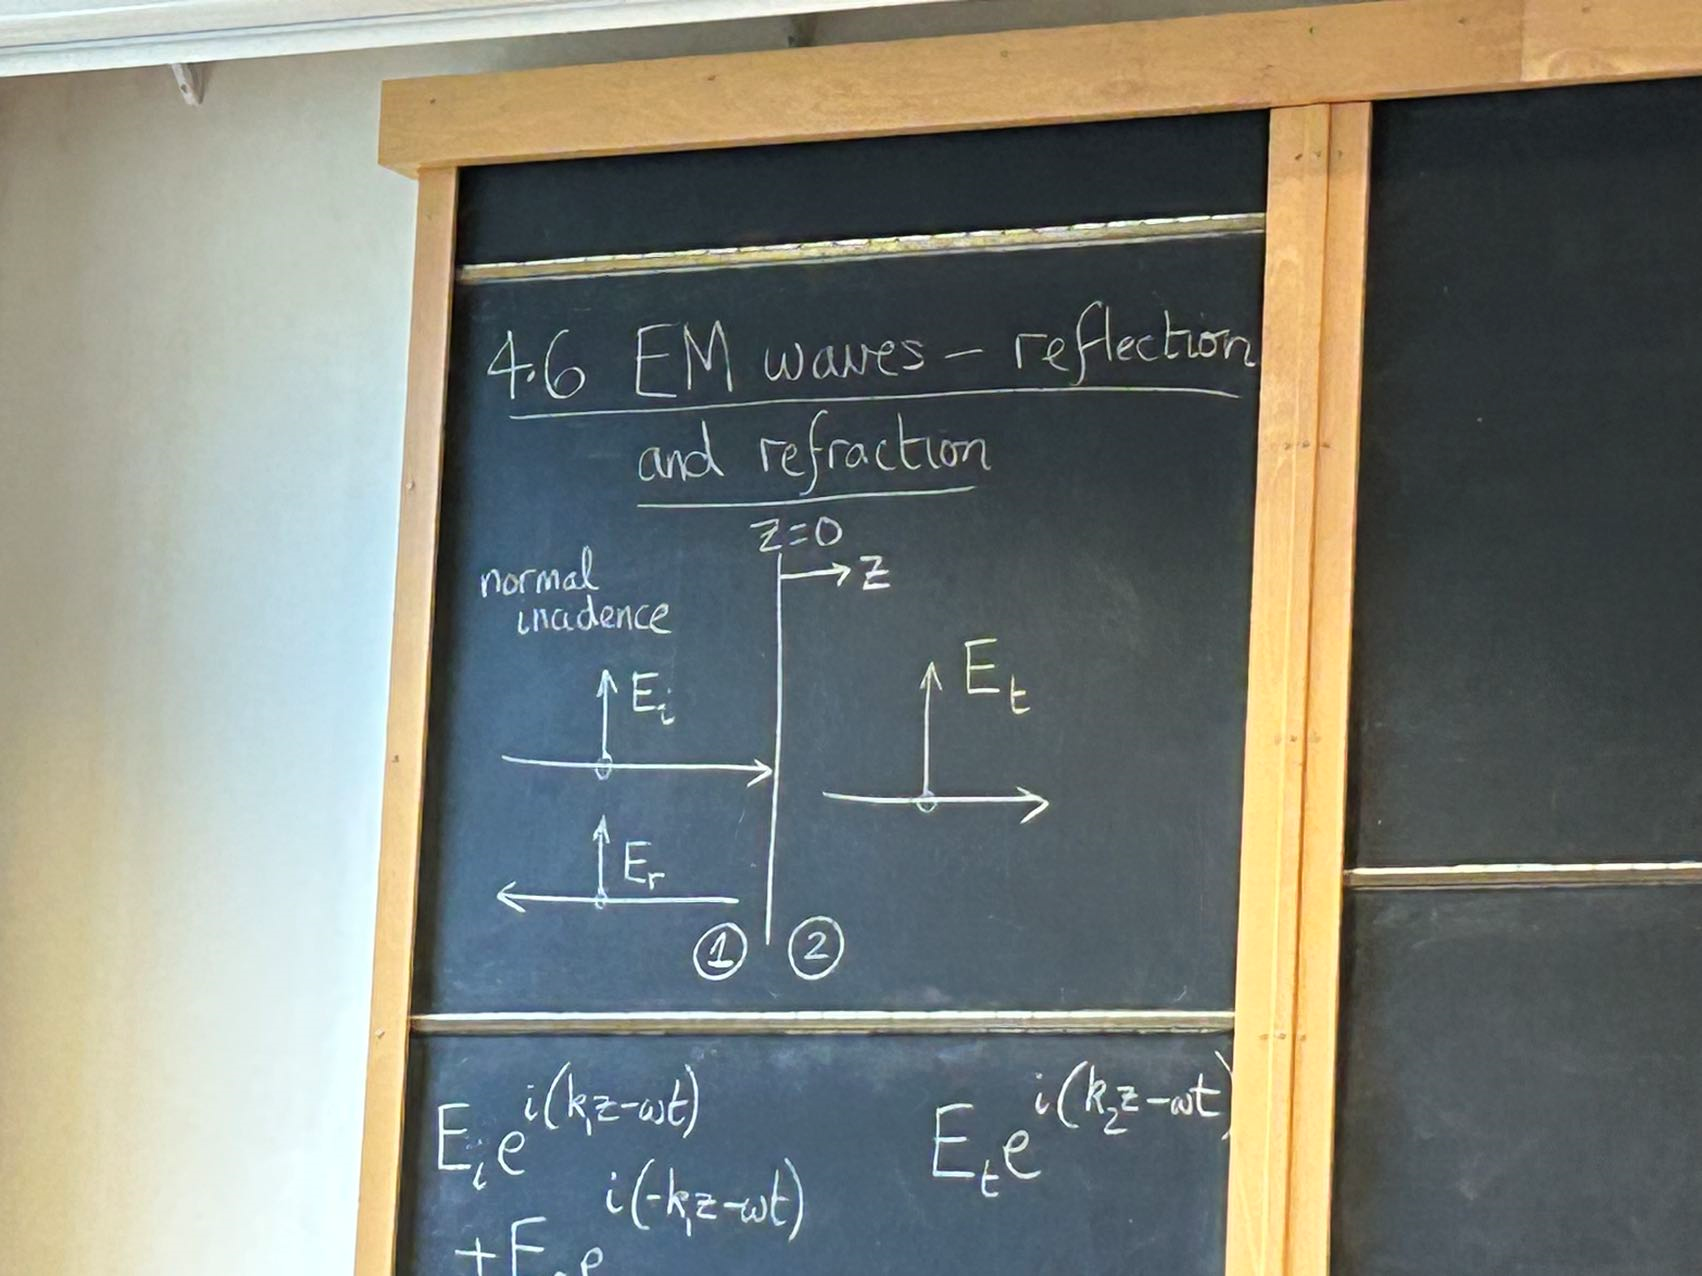 4.6 EM waves – reflection
and refraction
z=0
→ z
normal
incidence
E_i
E_t
E_r
① ②
E_i e^{i(k_1z-ωt)} E_t e^{i(k_2z-ωt)}
+E_r e^{i(-k_1z-ωt)}